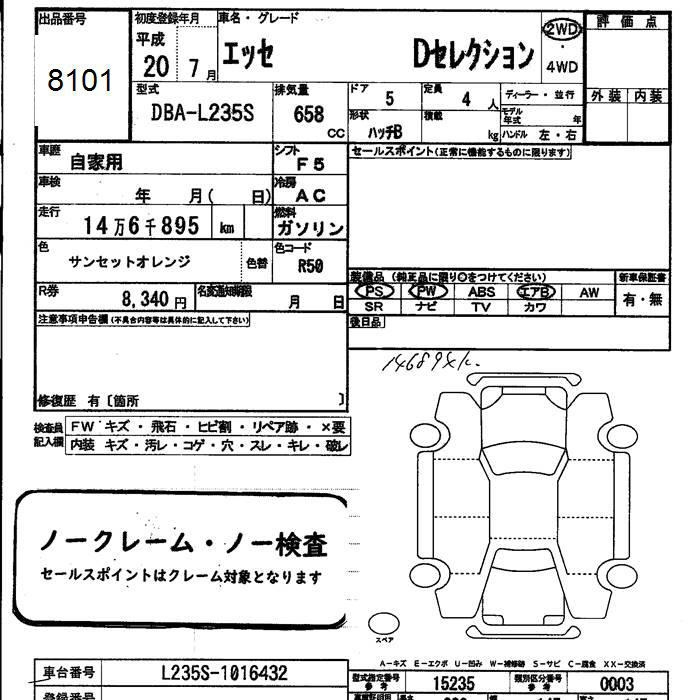 出品番号
8101
初度登録年月
平成
20 7月
車名・グレード
エッセ Dセレクション
2WD
・
4WD
評価点
外装 内装
型式
DBA-L235S
排気量
658
CC
ドア
5
定員
4 人
ディーラー・並行
形状
ハッチB
積載
kg
モデル年式 年
ハンドル 左・右
車歴
自家用
シフト
F5
セールスポイント(正常に機能するものに限ります)
車検
年 月( 日)
冷房
AC
走行
14万6千895 km
燃料
ガソリン
色
サンセットオレンジ
色替
色コード
R50
装備品 (純正品に限り○をつけてください)
新車保証書
PS PW ABS エアB AW
有・無
SR ナビ TV カワ
R券
8,340円
名変通知期限
月 日
後日品
注意事項申告欄(不具合内容等は具体的に記入して下さい)
修復歴 有〔箇所 〕
検査員記入欄
FW キズ・飛石・ヒビ割・リペア跡・×要
内装 キズ・汚レ・コゲ・穴・スレ・キレ・破レ
ノークレーム・ノー検査
セールスポイントはクレーム対象となります
スペア
A-キズ E-エクボ U-凹み W-補修跡 S-サビ C-腐食 XX-交換済
車台番号
L235S-1016432
型式指定番号
参考
15235
類別区分番号
参考
0003